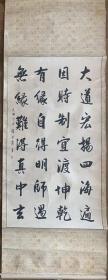 大道宏揚四海遍
因時制宜渡坤乾
有緣自得明師遇
無緣難得真中玄